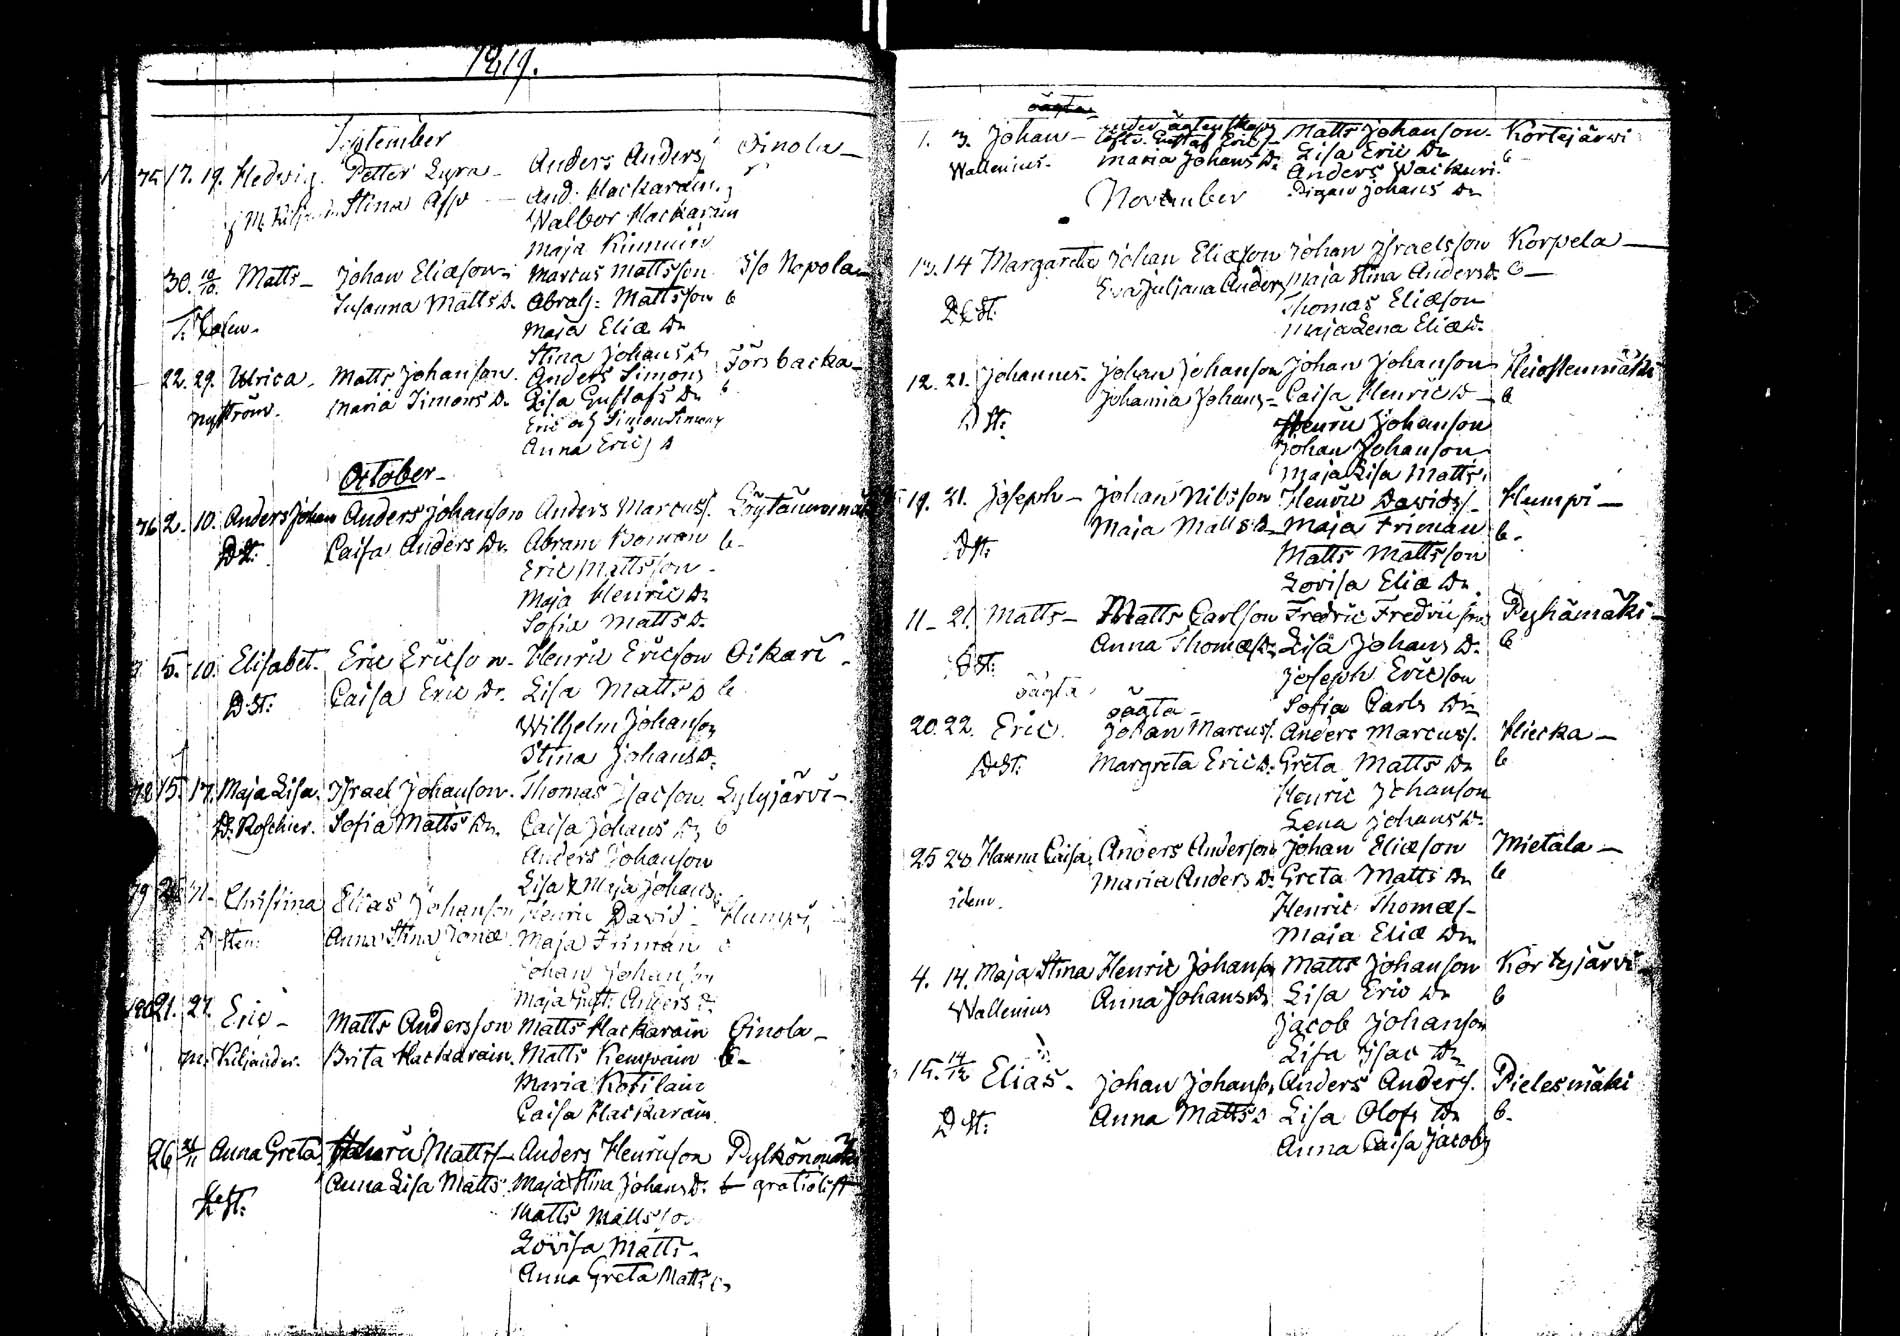 1819.
September
75 17. 19. Hedwig. Petter Lyra - Anders Anders Oinola -
Stina And: Hackarain.
Walbor Hackarain
Maja Kinnuin
30. 10/10. Matts - Johan Eliæson Marcus Mattsson Nopola
Susanna Matts D. Abrah: Mattsson 6
Maja Eliæ Dr
Stina Johans Dr
22. 29. Ulrica. Matts Johanson. Anders Simons Forsbacka -
Nyström. Maria Simons Dr. Lisa Gustafs Dr 6
Eric och Simon Simons
Anna Erics D
October -
76 2. 10. Anders Johan Anders Johanson Anders Marcuss.
D St: Caisa Anders Dr. Abram Boman 6 -
Eric Mattsson -
Maja Henric Dr
Sofia Matts D.
5. 10. Elisabet. Eric Ericson - Henric Ericson Oikari -
D St: Caisa Eric Dr. Lisa Matts D 6
Wilhelm Johanson
Stina Johans D.
78 15. 17. Maja Lisa. Israel Johanson. Thomas Isacson. Lylyjärvi -
D. Roschier. Sofia Matts Dr. Caisa Johans Dr 6
Anders Johanson
Lisa & Maja Johans
79 Christina Elias Johanson Henric David - Humpi
Anna Stina Jonæ Maja Friman 6
Johan Johanson
Maja Anders D.
21. 27. Eric - Matts Andersson Matts Hackarain Oinola -
M. Kiljander. Brita Hackarain. Matts Kempain 6 -
Maria Kotilain
Caisa Hackarain.
26 21/11 Anna Greta Henric Matts - Anders Henricson Pylkönmäki
D St: Anna Lisa Matts Maja Stina Johans D. 6 gratialist
Matts Mattsson
Lovisa Matts -
Anna Greta Matts
oägta
1. 3. Johan - under ägtenskap Matts Johanson. Kortejärwi
Wallenius. Gustaf Lisa Eric Dr 6
Maria Johans D. Anders Wackuri.
Johans Dr
November
13. 14 Margareta Johan Eliæson Johan Israelsson Korpela -
D St: Eva Juliana Anders Maja Stina Anders D. 6 -
Thomas Eliæson
Maja Lena Eliæ D.
12. 21. Johannes. Johan Johanson Johan Johanson
D St: Johanna Johans - Caisa Henric D - 6
Henric Johanson
Johan Johanson
Maja Lisa Matts
19. 21. Joseph - Johan Nilsson Henric Davids - Humpi -
D St: Maja Matts D - Maja Friman 6 -
Matts Mattsson
Lovisa Eliæ Dr
11 - 21. Matts - Matts Carlson Fredric Fredricson Pyhämäki -
D St: Anna Thomæ D. Lisa Johans D. 6
Joseph Ericson
Sofia Carls Dr
oägta oägta -
20. 22. Eric. Johan Marcuss. Anders Marcuss. Hiecka -
D St: Margreta Eric D. Greta Matts Dr 6
Henric Johanson
Lena Johans D.
25 28 Hanna Caisa. Anders Anderson Johan Eliæson Mietala -
idem. Maria Anders D. Greta Matts Dr 6
Henric Thomæs -
Maja Eliæ Dr
4. 14. Maja Stina Henric Johanson Matts Johanson Kortejärvi
Wallenius Anna Johans Dr Lisa Eric Dr 6
Jacob Johanson
Lisa Isac Dr
15. 14/12 Elias. Johan Johanson Anders Anders. Pielesmäki
D St: Anna Matts D Lisa Olofs Dr 6.
Anna Caisa Jacobs